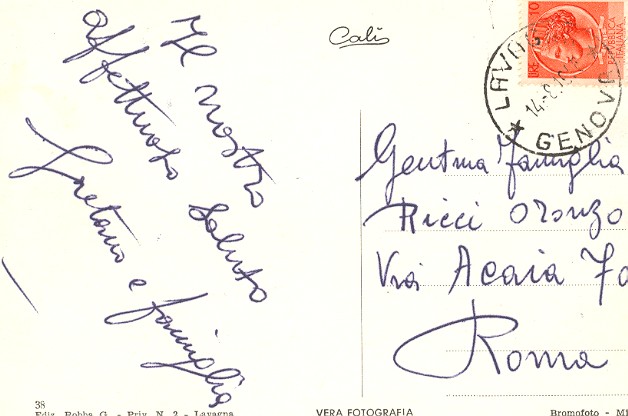 Il nostro
affettuoso saluto
Gaetano e famiglia
Cali
LIRE 10
REPUBBLICA
ITALIANA
GENOVA
Gent.ma Famiglia
Ricci Oronzo
Via Acaia 70
Roma
38
Ediz. Bobba G. - Priv. N. 2 - Lavagna
VERA FOTOGRAFIA
Bromofoto - MI